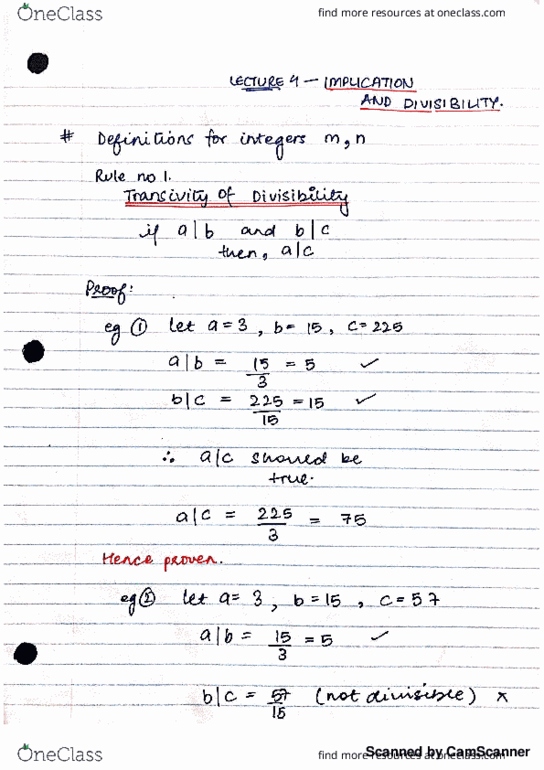 OneClass
find more resources at oneclass.com
LECTURE 4 — IMPLICATION
AND DIVISIBILITY.
# Definitions for integers m,n
Rule no 1.
Transivity Of Divisibility
if a|b and b|c
then, a|c
Proof:
eg ① let a=3, b= 15, c=225
a|b = 15/3 = 5 ✓
b|c = 225/15 = 15 ✓
∴ a|c should be
true.
a|c = 225/3 = 75
Hence proven.
eg ② let a= 3, b=15, c=57
a|b = 15/3 = 5 ✓
b|c = 57/15 (not divisible) ×
OneClass
find more resources at oneclass.com
Scanned by CamScanner